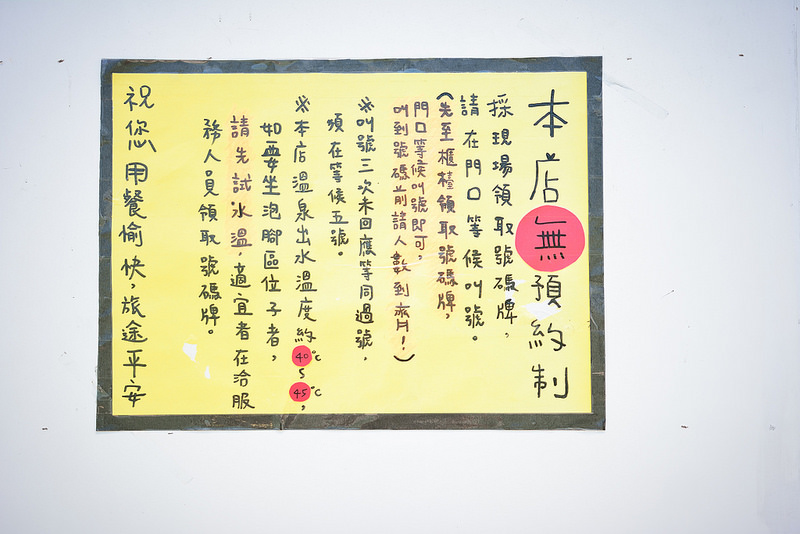 本店無預約制
採現場領取號碼牌，
請在門口等候叫號。
(先至櫃檯領取號碼牌，
門口等候叫號即可，
叫到號碼前請人數到齊！)
※叫號三次未回應等同過號，
須在等候五號。
※本店溫泉出水溫度約40℃~45℃，
如要坐泡腳區位子者，
請先試水溫，適宜者在洽服
務人員領取號碼牌。
祝您用餐愉快，旅途平安